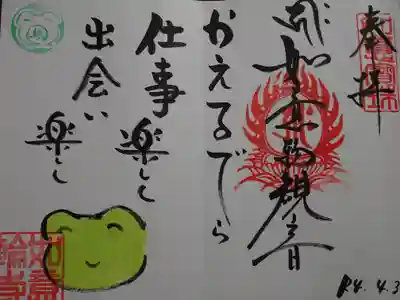 奉拝
如意輪観音
かえるでら
R4.4.3
仕事楽しく
出会い楽しく
如意輪寺